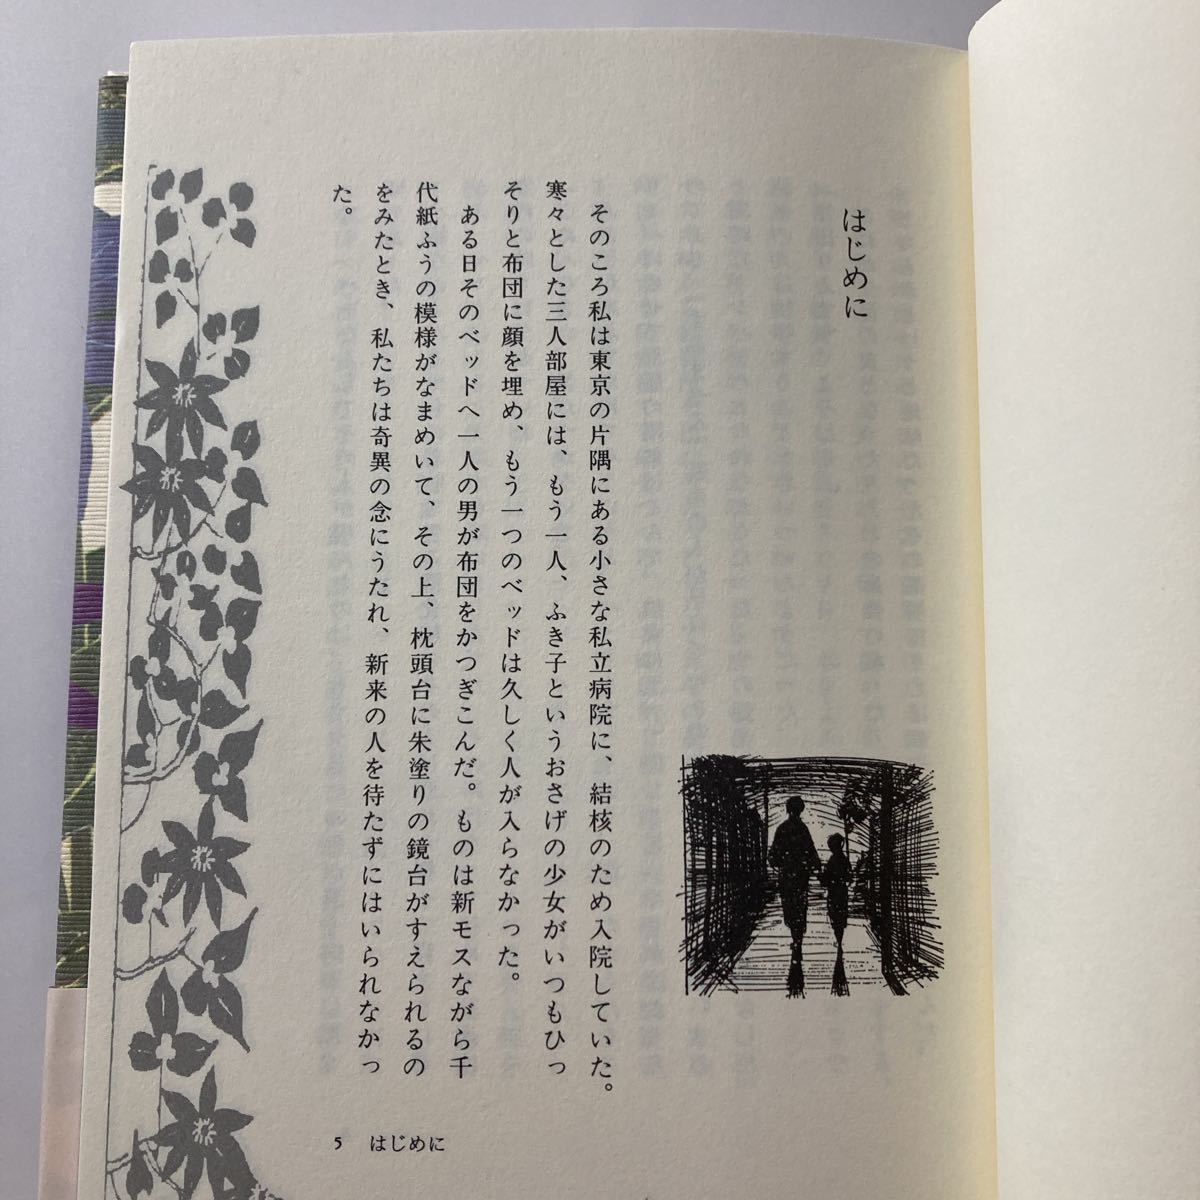 はじめに
そのころ私は東京の片隅にある小さな私立病院に、結核のため入院していた。
寒々とした三人部屋には、もう一人、ふき子というおさげの少女がいつもひっ
そりと布団に顔を埋め、もう一つのベッドは久しく人が入らなかった。
ある日そのベッドへ一人の男が布団をかつぎこんだ。ものは新モスながら千
代紙ふうの模様がなまめいて、その上、枕頭台に朱塗りの鏡台がすえられるの
をみたとき、私たちは奇異の念にうたれ、新来の人を待たずにはいられなかっ
た。
5 はじめに